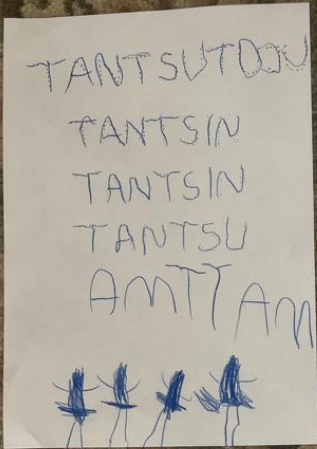 TANTSUTDOU
TANTSIN
TANTSIN
TANTSU
AMTT AM